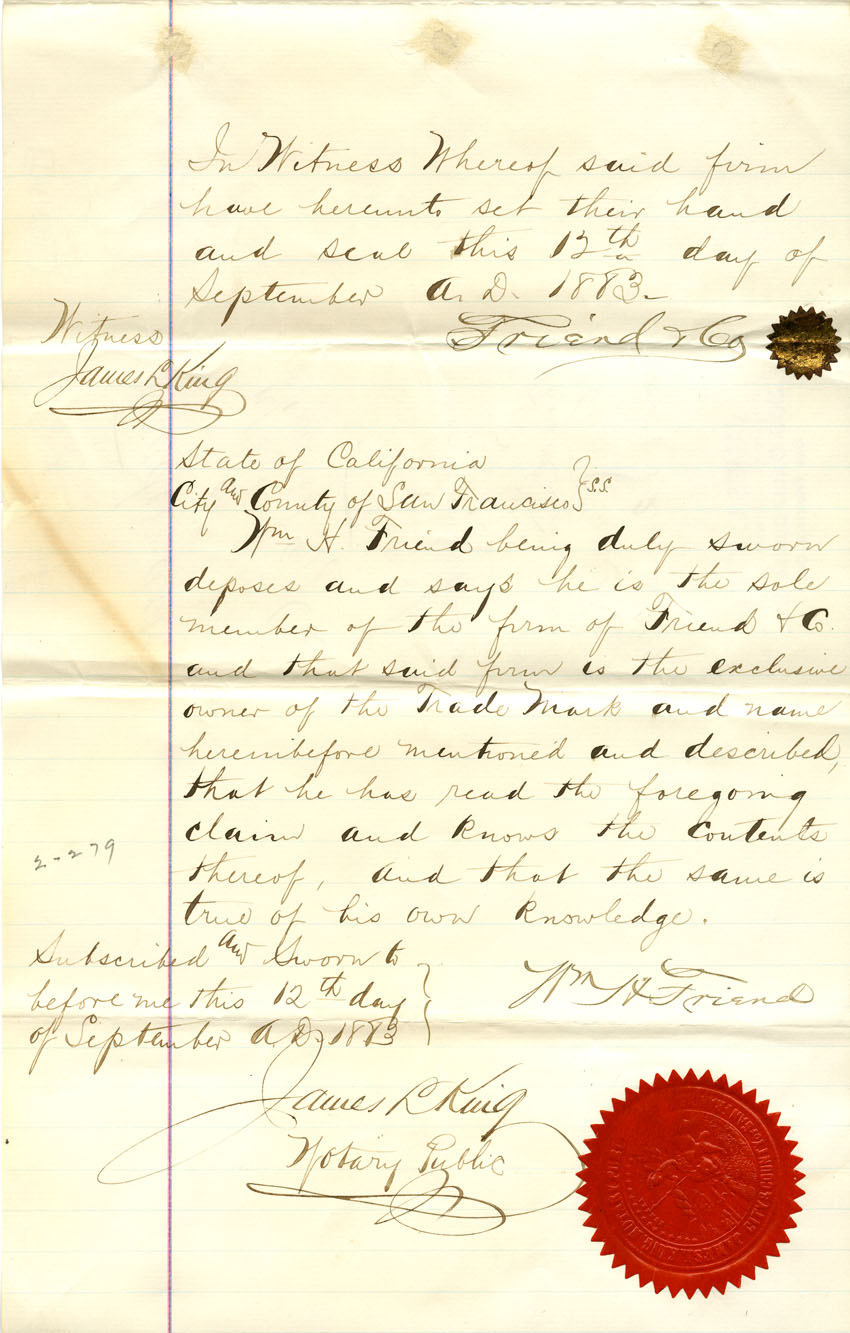 In Witness Whereof said firm
have hereunto set their hand
and seal this 12th day of
September A. D. 1883.
Friend & Co
Witness
James L King
State of California
City and County of San Francisco } S.S.
Wm H. Friend being duly sworn
deposes and says he is the sole
member of the firm of Friend & Co.
and that said firm is the exclusive
owner of the Trade Mark and name
hereinbefore mentioned and described,
that he has read the foregoing
claim and knows the contents
thereof, and that the same is
true of his own knowledge.
2-279
Subscribed and Sworn to
before me this 12th day
of September A.D. 1883
Wm H Friend
James L King
Notary Public